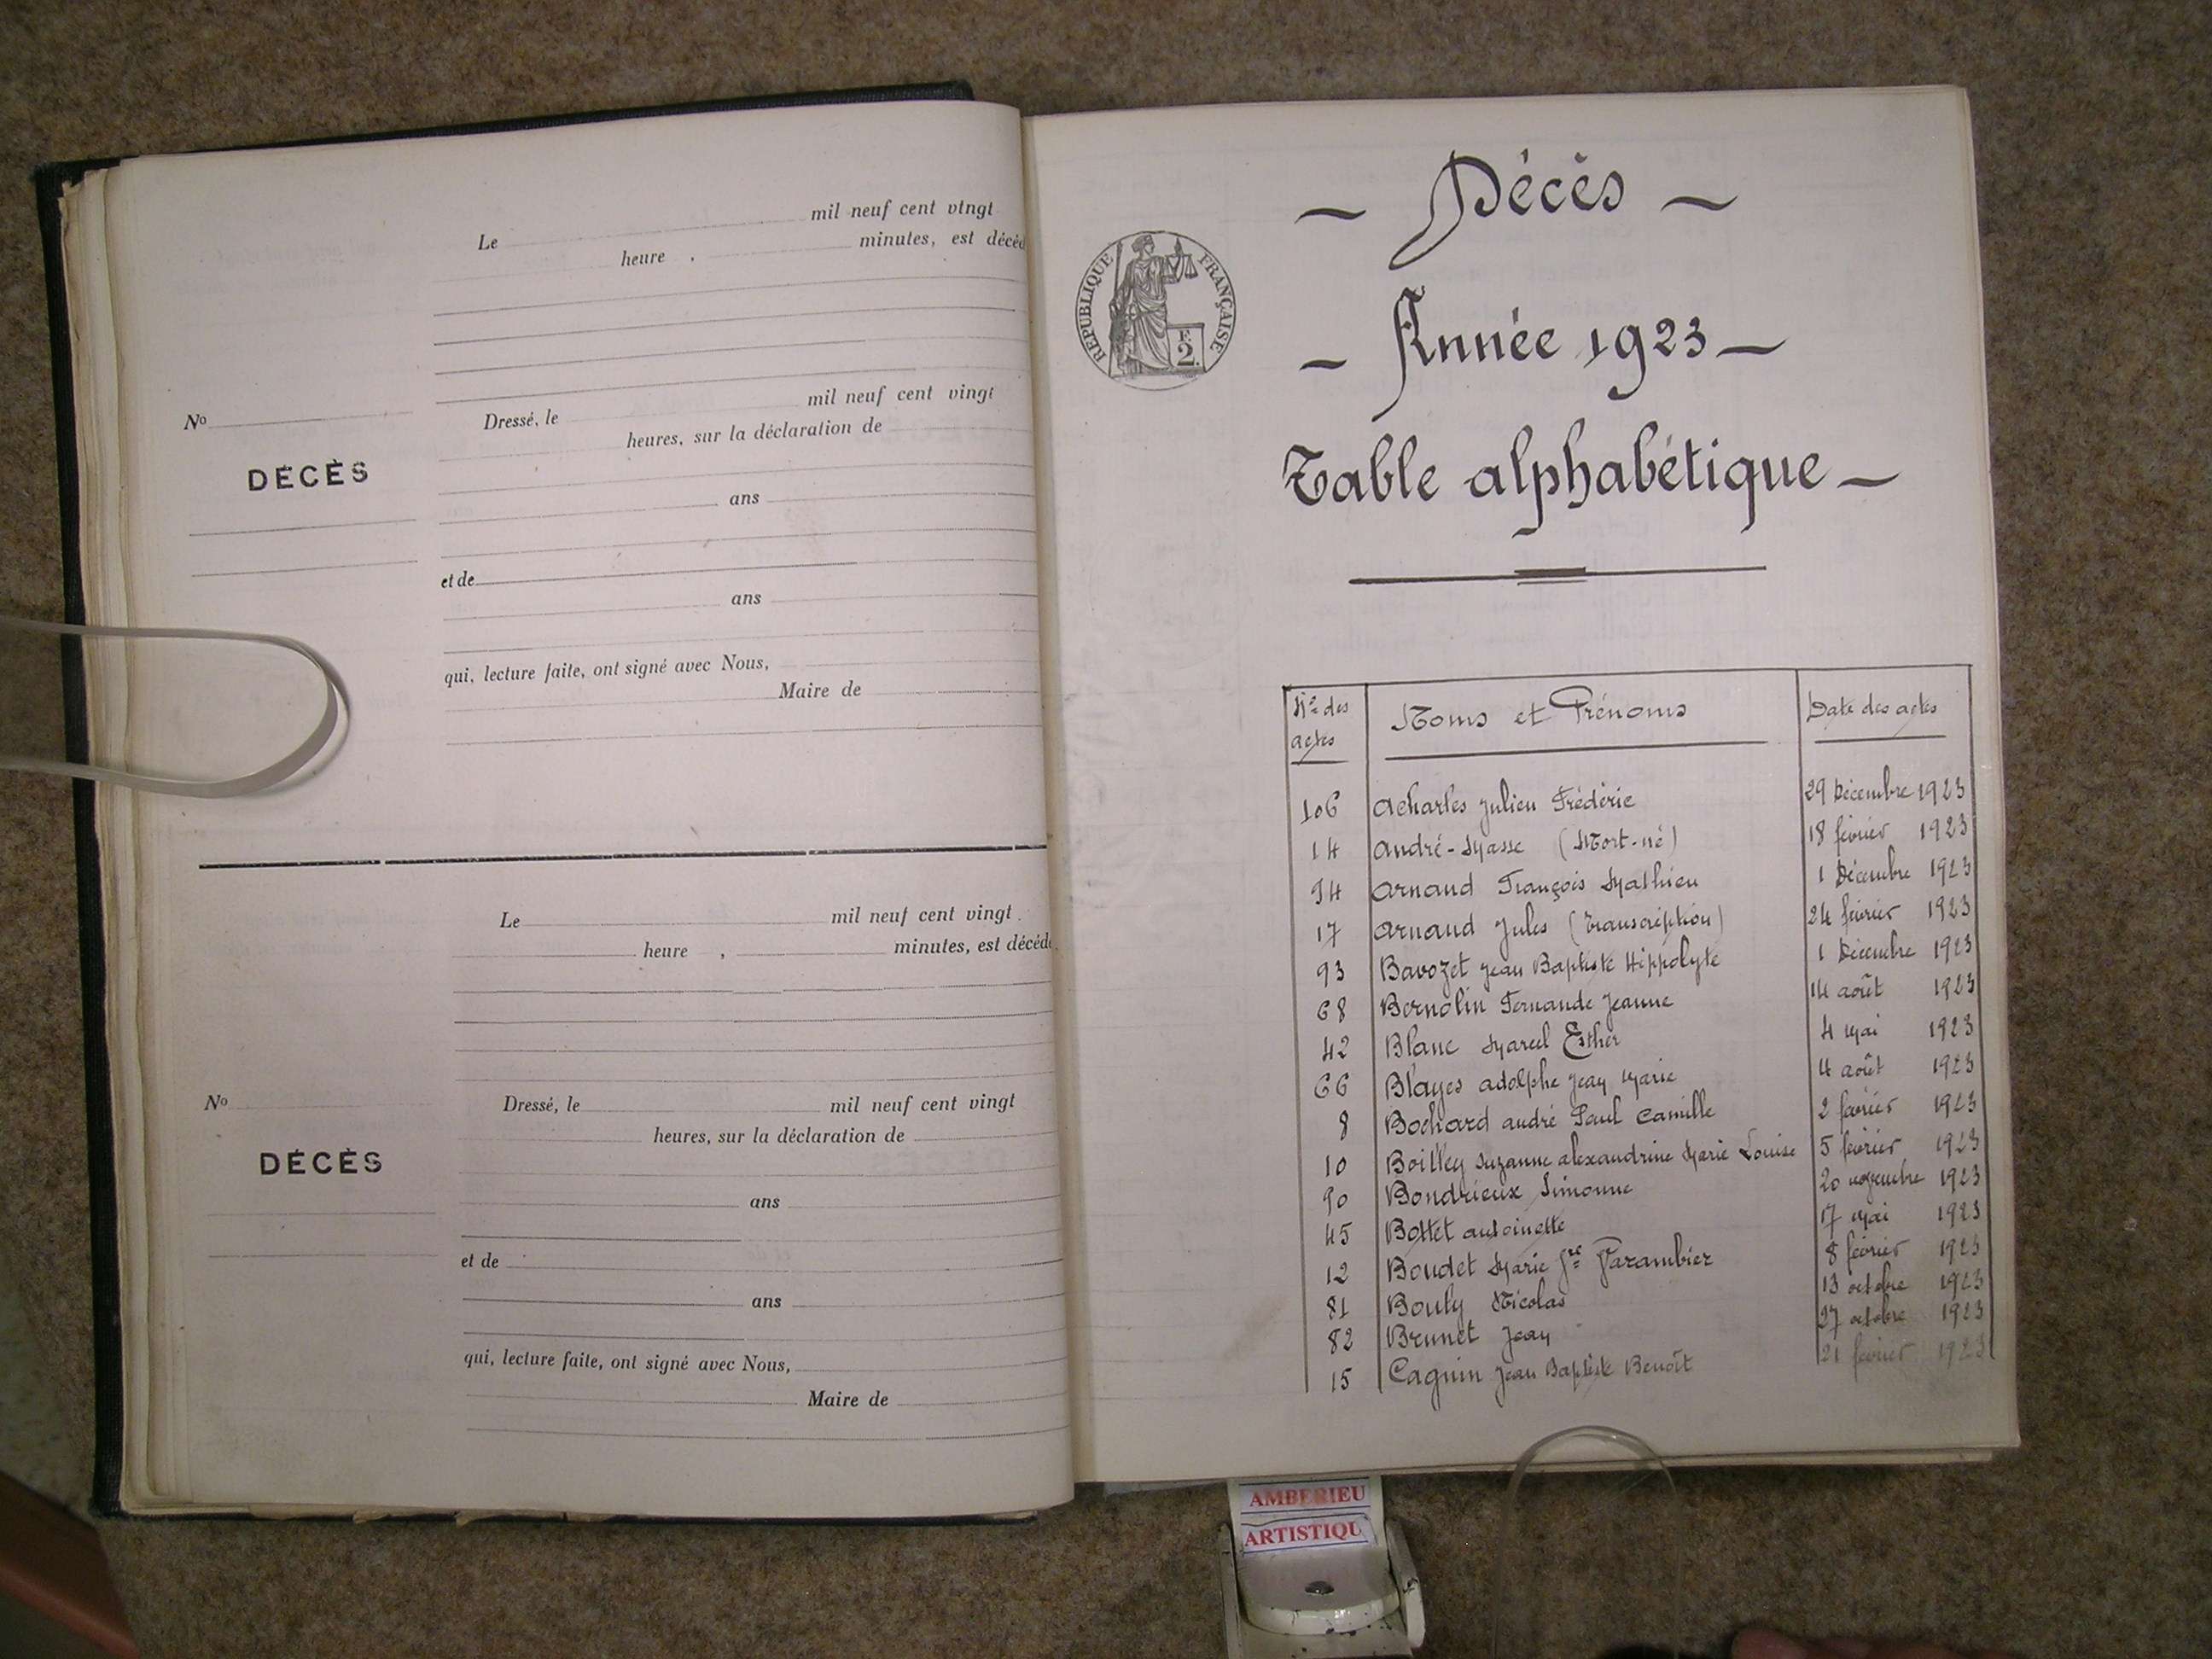 Le mil neuf cent vingt
heure , minutes, est décéd
No
DÉCÈS
Dressé, le mil neuf cent vingt
heures, sur la déclaration de
ans
et de
ans
qui, lecture faite, ont signé avec Nous,
Maire de
Le mil neuf cent vingt
heure , minutes, est décédé
No
DÉCÈS
Dressé, le mil neuf cent vingt
heures, sur la déclaration de
ans
et de
ans
qui, lecture faite, ont signé avec Nous,
Maire de
— Décès —
RÉPUBLIQUE FRANÇAISE
F. 2.
— Année 1923 —
Table alphabétique —
Nos des actes Noms et Prénoms Date des actes
106 Acharles Julien Frédéric 29 Décembre 1923
14 André-Masse (Mort-né) 18 février 1923
94 Arnaud François Mathieu 1 Décembre 1923
17 Arnaud Jules (Transcription) 24 février 1923
93 Bavozet Jean Baptiste Hippolyte 1 Décembre 1923
68 Bernolin Fernande Jeanne 14 août 1923
42 Blanc Marcel Esther 4 Mai 1923
66 Blayes Adolphe Jean Marie 4 août 1923
8 Bochard André Paul Camille 2 février 1923
10 Boilley Suzanne Alexandrine Marie Louise 5 février 1923
90 Bondrieux Simonne 20 novembre 1923
45 Bottet Antoinette 17 Mai 1923
12 Boudet Marie Vve Parambier 8 février 1923
81 Bouly Nicolas 13 octobre 1923
82 Brunet Jean 27 octobre 1923
15 Cagnin Jean Baptiste Benoît 21 février 1923
AMBERIEU
ARTISTIQU